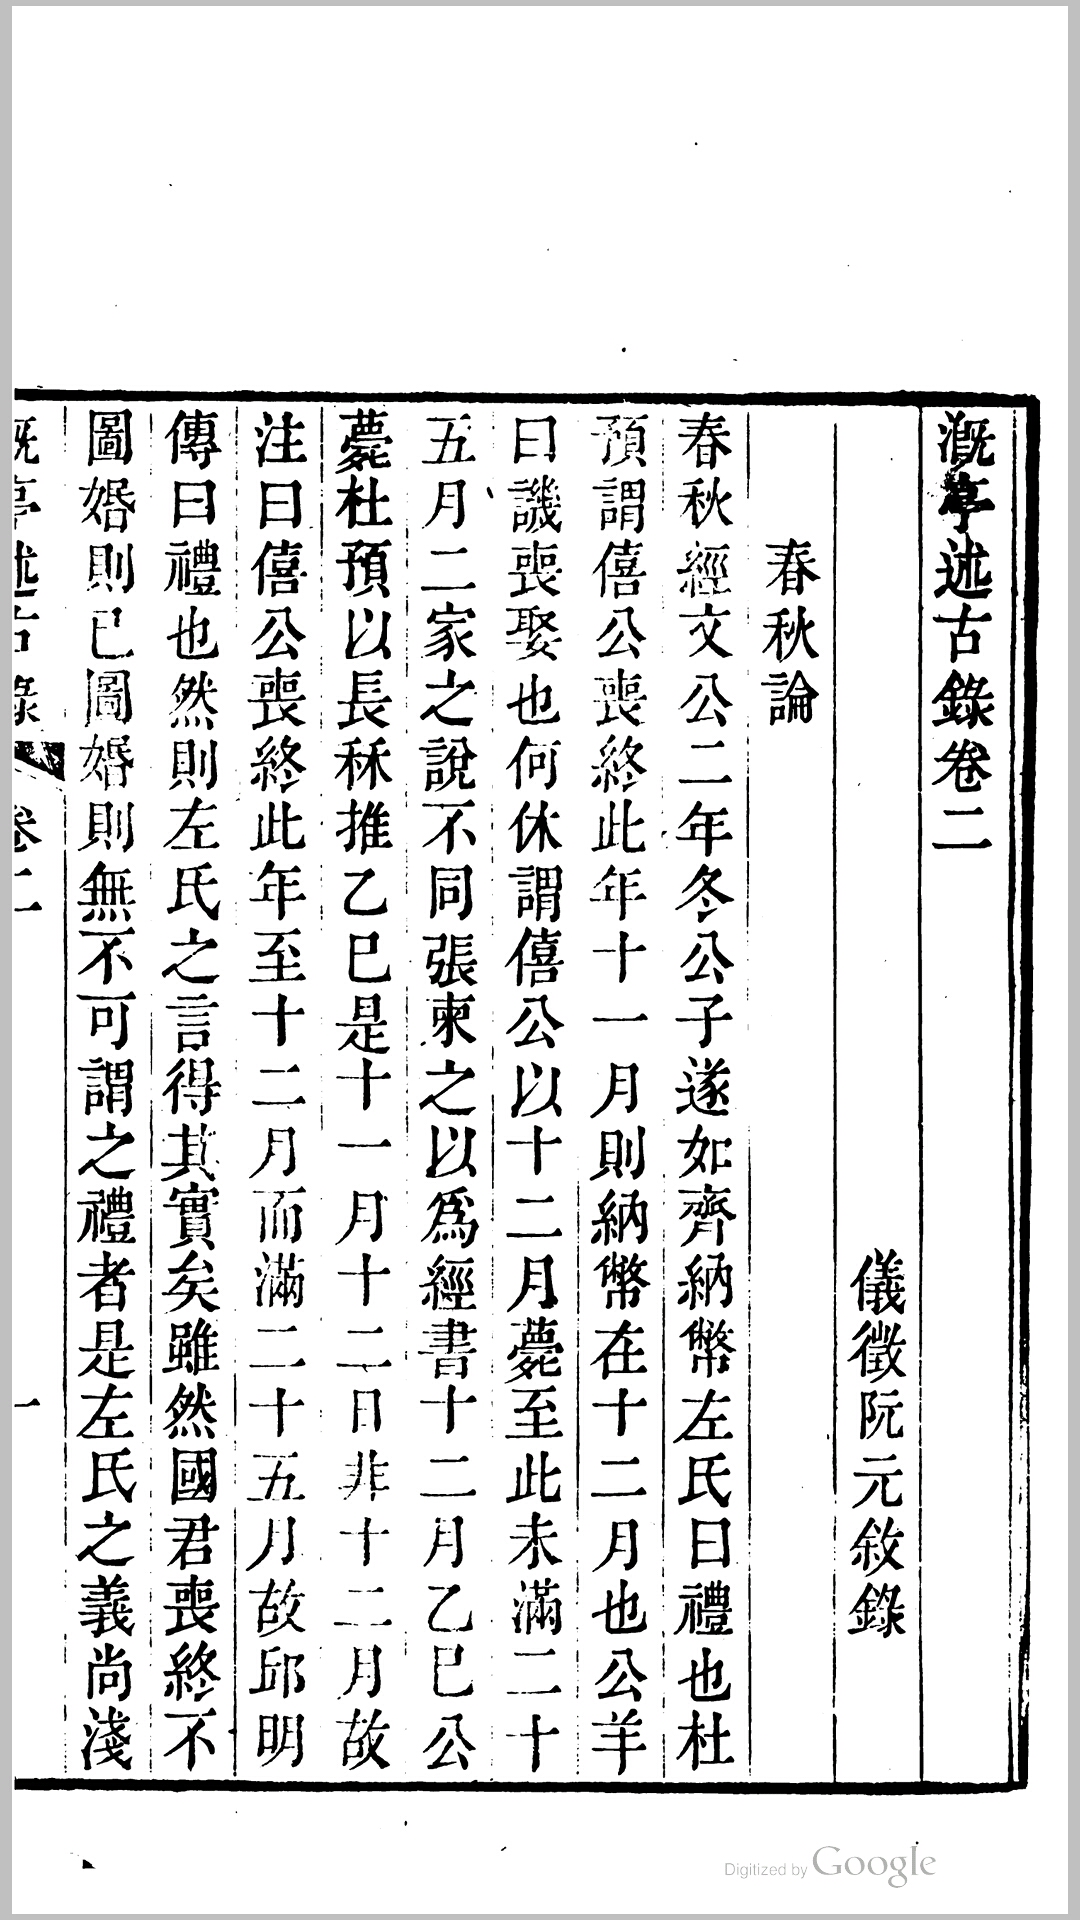 溉亭述古錄卷二
儀徵阮元敘錄
春秋論
春秋經文公二年冬公子遂如齊納幣左氏曰禮也杜
預謂僖公喪終此年十一月則納幣在十二月也公羊
曰譏喪娶也何休謂僖公以十二月薨至此未滿二十
五月二家之說不同張柬之以爲經書十二月乙巳公
薨杜預以長秝推乙巳是十一月十二日非十二月故
注曰僖公喪終此年至十二月而滿二十五月故邱明
傳曰禮也然則左氏之言得其實矣雖然國君喪終不
圖婚則已圖婚則無不可謂之禮者是左氏之義尚淺
溉亭述古錄 卷二 一
Digitized by Google